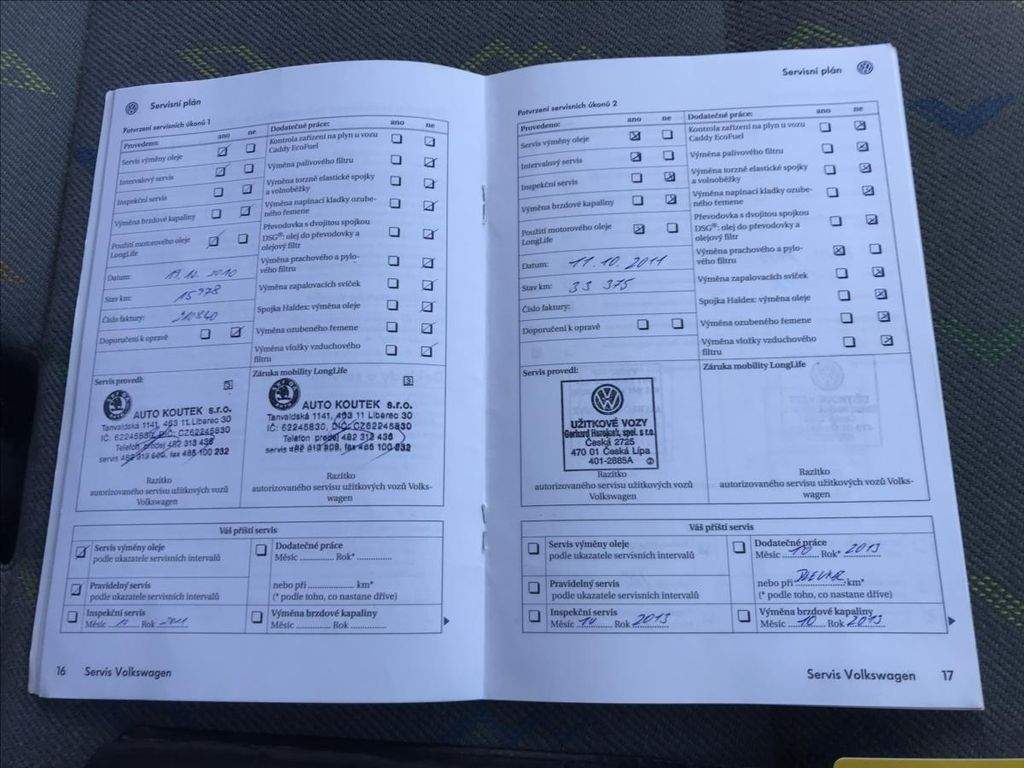 Servisní plán
Potvrzení servisních úkonů 1
Provedeno: ano ne
Servis výměny oleje
Intervalový servis
Inspekční servis
Výměna brzdové kapaliny
Použití motorového oleje
LongLife
Datum: 17.12.2010
Stav km: 15978
Číslo faktury: 210840
Doporučení k opravě
Dodatečné práce: ano ne
Kontrola zařízení na plyn u vozu
Caddy EcoFuel
Výměna palivového filtru
Výměna torzně elastické spojky
a volnoběžky
Výměna napínací kladky ozube-
ného řemene
Převodovka s dvojitou spojkou
DSG®: olej do převodovky a
olejový filtr
Výměna prachového a pylo-
vého filtru
Výměna zapalovacích svíček
Spojka Haldex: výměna oleje
Výměna ozubeného řemene
Výměna vložky vzduchového
filtru
Servis provedl:
3
AUTO KOUTEK s.r.o.
Tanvaldská 1141, 463 11 Liberec 30
IČ: 62245830, DIČ: CZ62245830
Telefon prodej 482 313 436
servis 482 313 609, fax 485 100 232
Razítko
autorizovaného servisu užitkových vozů
Volkswagen
Záruka mobility LongLife
3
AUTO KOUTEK s.r.o.
Tanvaldská 1141, 463 11 Liberec 30
IČ: 62245830, DIČ: CZ62245830
Telefon prodej 482 313 436
servis 482 313 609, fax 485 100 232
Razítko
autorizovaného servisu užitkových vozů Volks-
wagen
Váš příští servis
Servis výměny oleje
podle ukazatele servisních intervalů
Pravidelný servis
podle ukazatele servisních intervalů
Inspekční servis
Měsíc Rok 2011
Dodatečné práce
Měsíc Rok*
nebo při km*
(* podle toho, co nastane dříve)
Výměna brzdové kapaliny
Měsíc Rok
16 Servis Volkswagen
Servisní plán
Potvrzení servisních úkonů 2
Provedeno: ano ne
Servis výměny oleje
Intervalový servis
Inspekční servis
Výměna brzdové kapaliny
Použití motorového oleje
LongLife
Datum: 11.10.2011
Stav km: 33 375
Číslo faktury:
Doporučení k opravě
Dodatečné práce: ano ne
Kontrola zařízení na plyn u vozu
Caddy EcoFuel
Výměna palivového filtru
Výměna torzně elastické spojky
a volnoběžky
Výměna napínací kladky ozube-
ného řemene
Převodovka s dvojitou spojkou
DSG®: olej do převodovky a
olejový filtr
Výměna prachového a pylo-
vého filtru
Výměna zapalovacích svíček
Spojka Haldex: výměna oleje
Výměna ozubeného řemene
Výměna vložky vzduchového
filtru
Servis provedl:
UŽITKOVÉ VOZY
Gerhard Horejsek, spol. s r.o.
Česká 2725
470 01 Česká Lípa
401-2885A
Razítko
autorizovaného servisu užitkových vozů
Volkswagen
Záruka mobility LongLife
Razítko
autorizovaného servisu užitkových vozů Volks-
wagen
Váš příští servis
Servis výměny oleje
podle ukazatele servisních intervalů
Pravidelný servis
podle ukazatele servisních intervalů
Inspekční servis
Měsíc 10 Rok 2013
Dodatečné práce
Měsíc 10 Rok* 2013
nebo při km*
(* podle toho, co nastane dříve)
Výměna brzdové kapaliny
Měsíc 10 Rok 2013
Servis Volkswagen 17